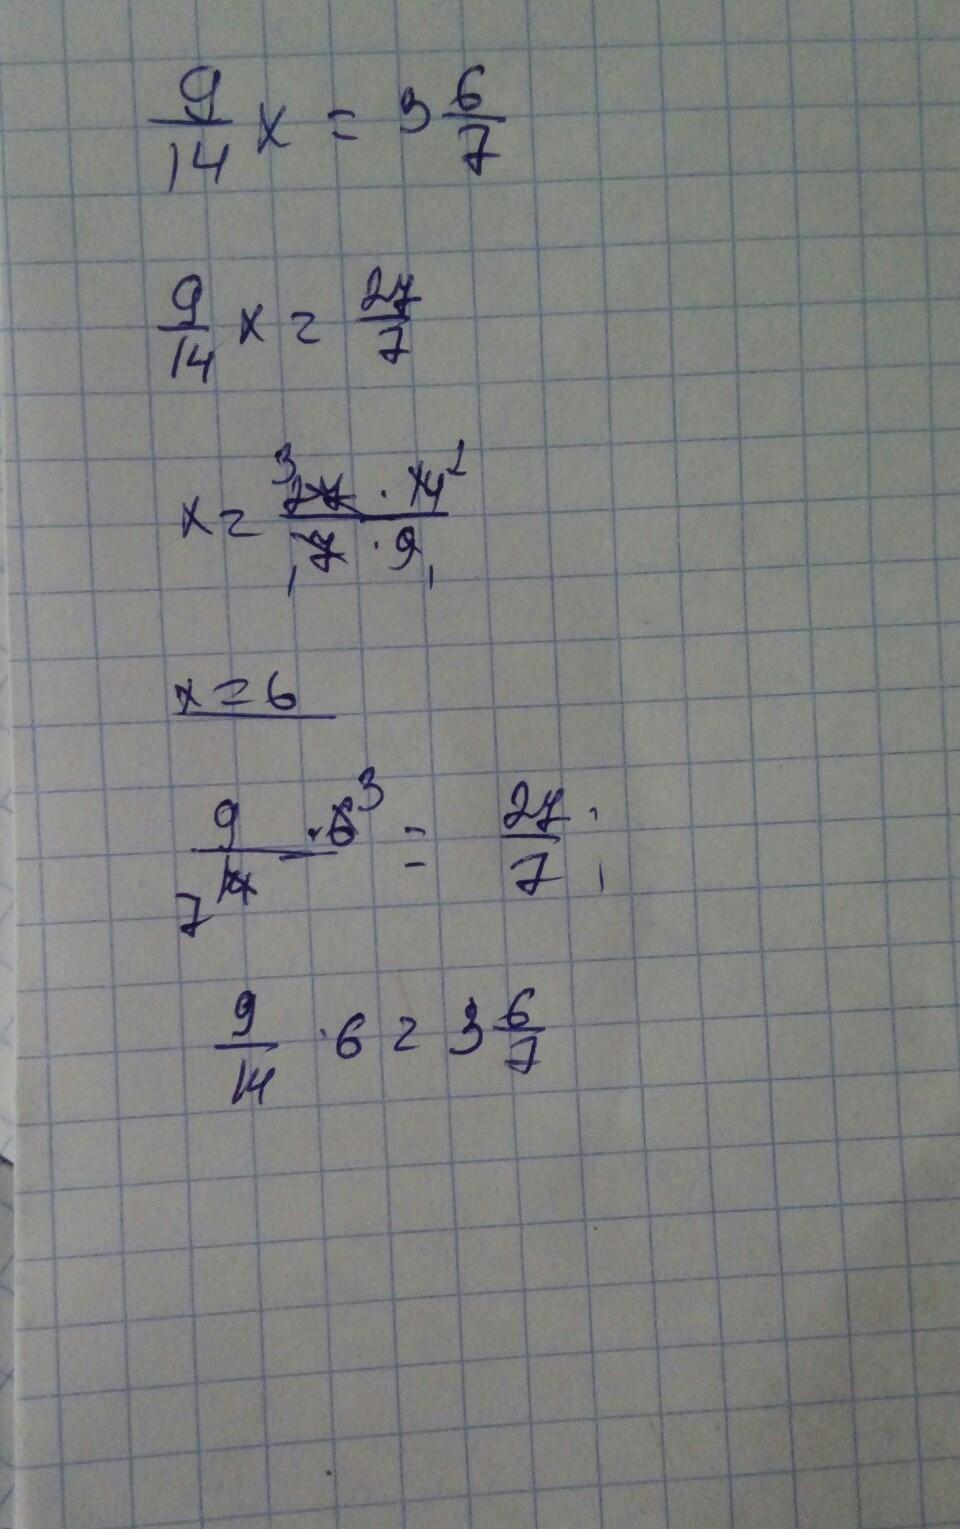 9/14 x = 3 6/7
9/14 x = 27/7
x = 3 27 · 14 2 / 1 7 · 9 1
x = 6
9 · 6 3 / 7 14 = 27/7 ;
9/14 · 6 = 3 6/7